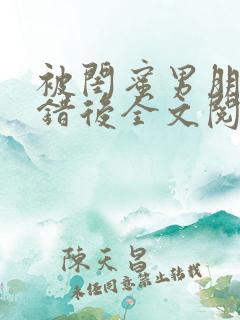 被閨蜜男朋
錯後全文閱
陳天昌
未经同意禁止转载